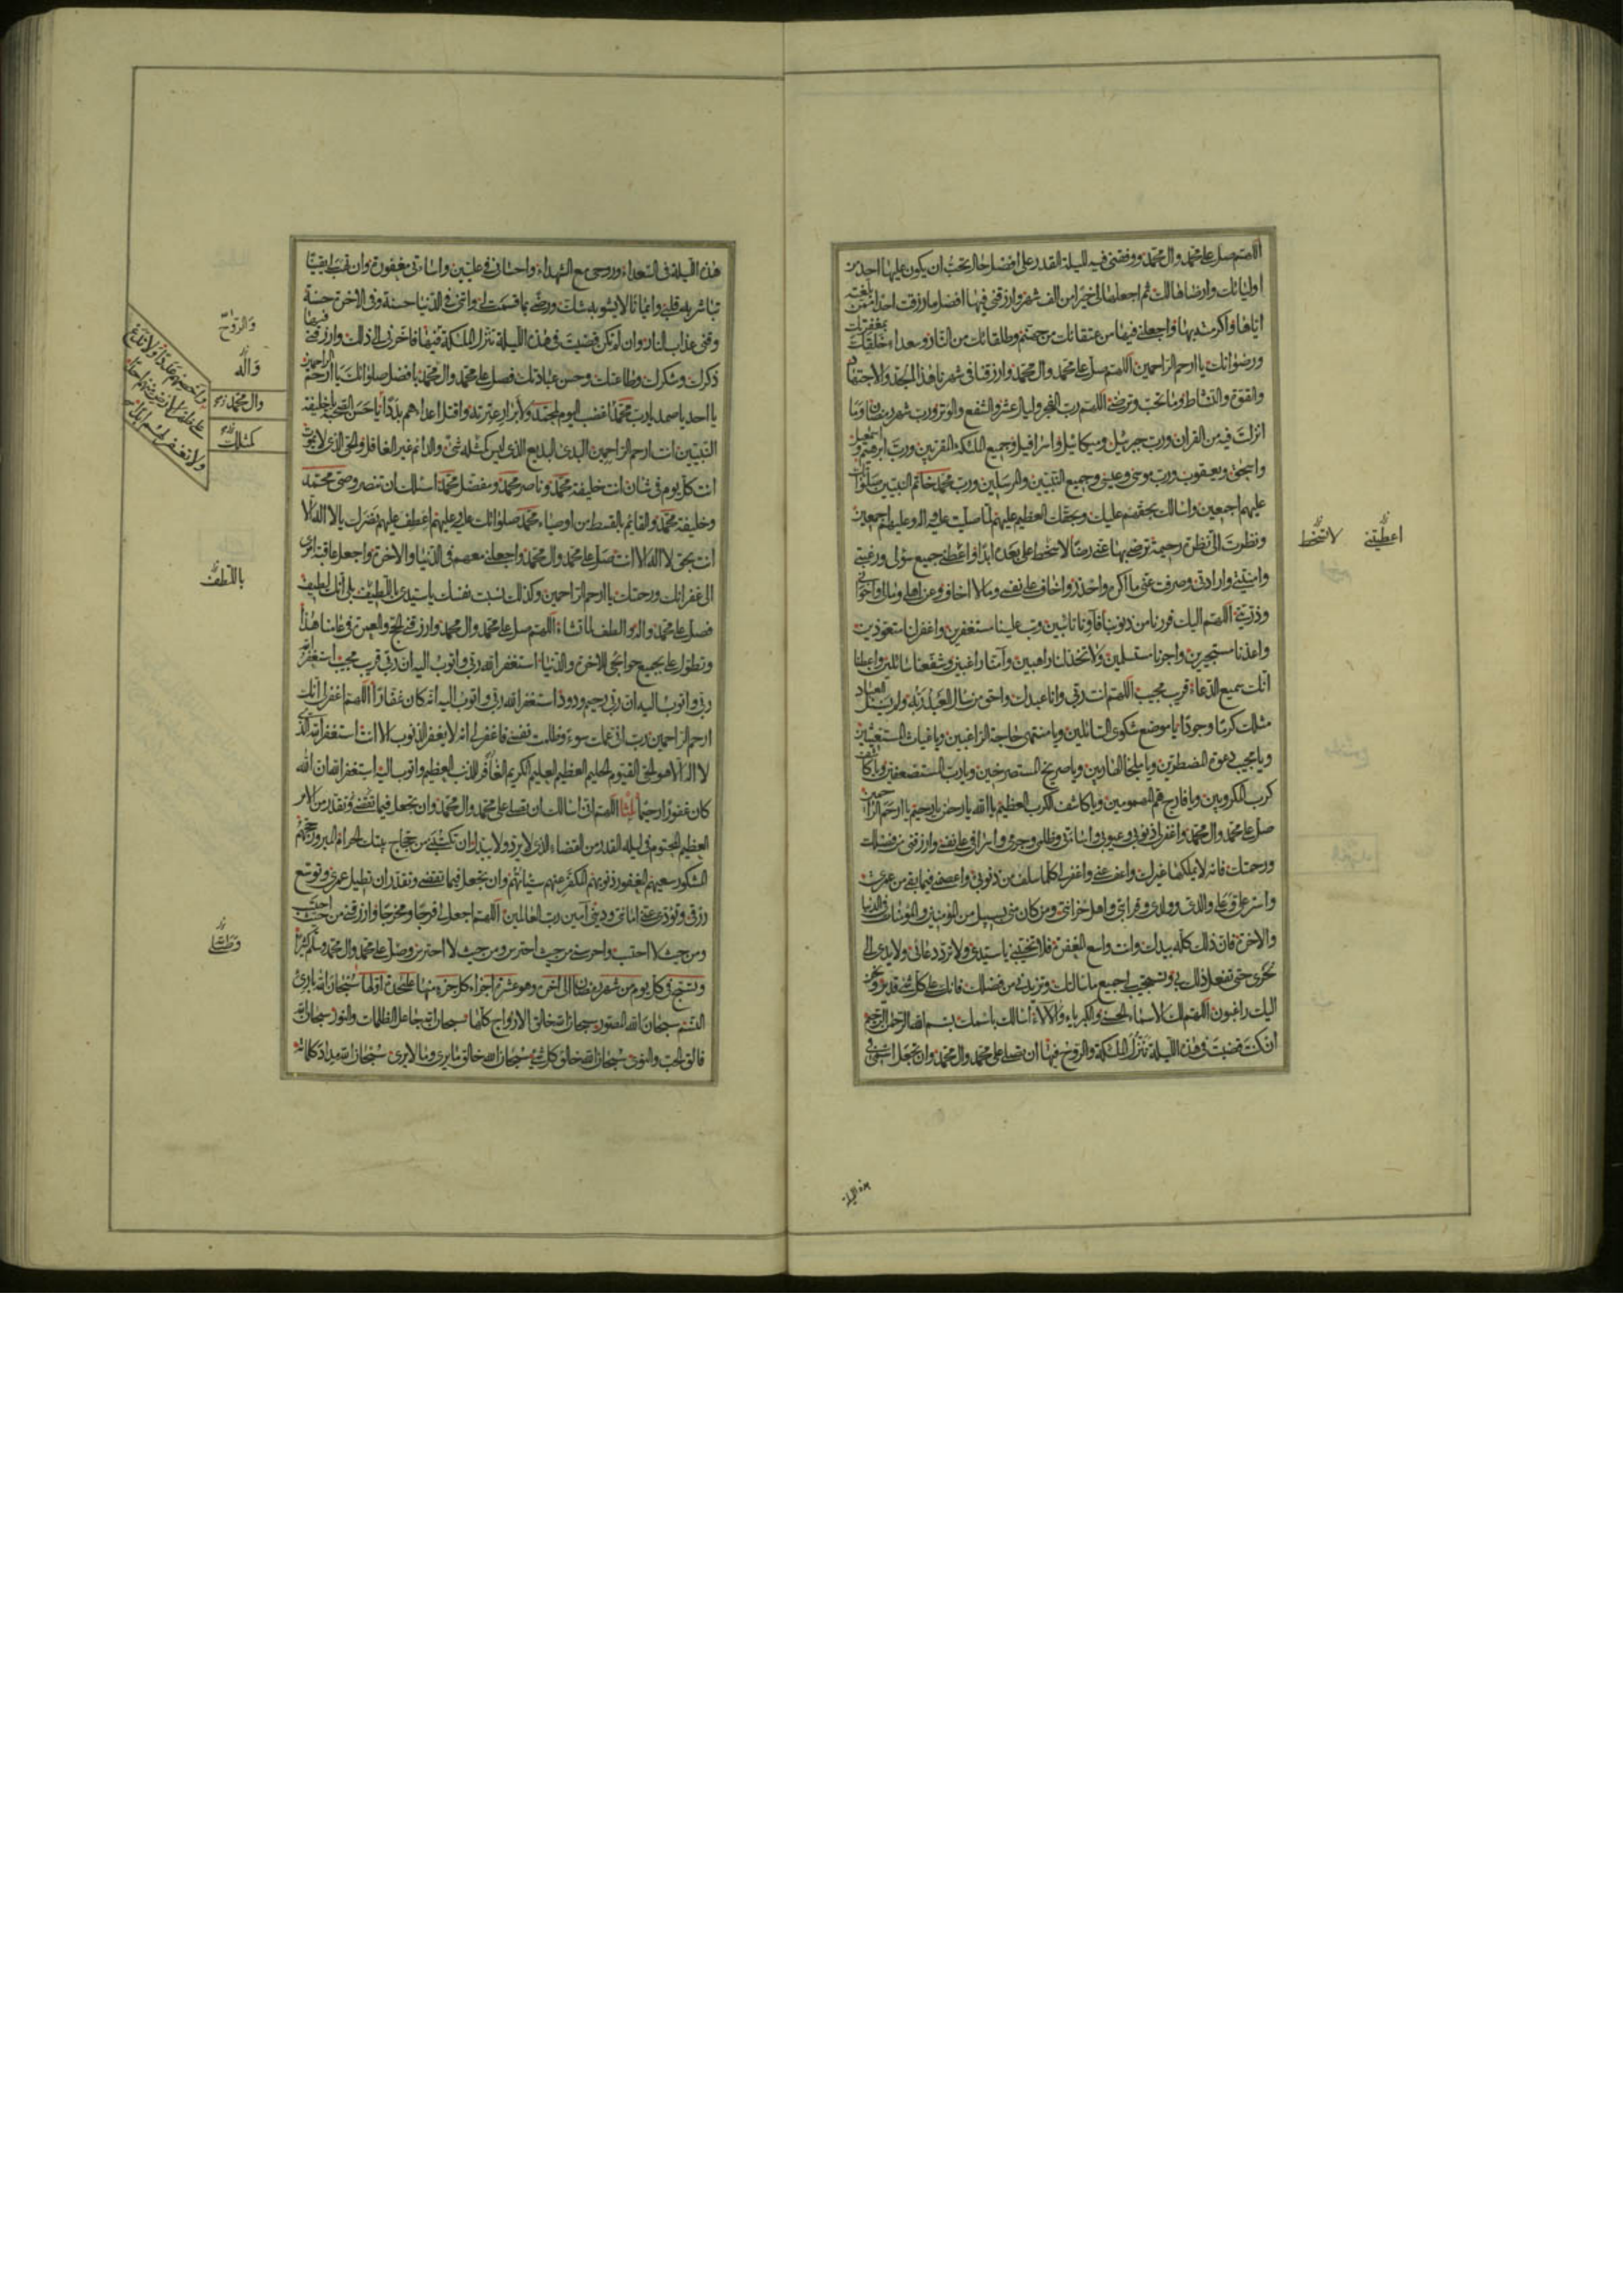 اللهم صل على محمد وال محمد ووفقني فيه لليلة القدر على افضل حال تحب ان يكون عليها احد من
اوليائك وارضاها لك ثم اجعلها لي خيرا من الف شهر وارزقني فيها افضل ما رزقت احدا ممن بلغته
اياها واكرمته بها واجعلني فيها من عتقائك من جهنم وطلقائك من النار وسعداء خلقك بمغفرتك
ورضوانك يا ارحم الراحمين اللهم صل على محمد وال محمد وارزقنا في شهرنا هذا الجد والاجتهاد
والقوة والنشاط وما تحب وترضى اللهم رب الفجر وليال عشر والشفع والوتر ورب شهر رمضان وما
انزلت فيه من القران ورب جبرئيل وميكائيل واسرافيل وجميع الملئكة المقربين ورب ابرهيم واسمعيل
واسحق ويعقوب ورب موسى وعيسى وجميع النبيين والمرسلين ورب محمد خاتم النبيين صلواتك
عليهم اجمعين واسالك بحقهم عليك وبحقك العظيم عليهم لما صليت عليه واله وعليهم اجمعين
ونظرت الي نظرة رحيمة ترضى بها عني رضا لا سخط علي بعده ابدا واعطني جميع سؤلي ورغبتي
وامنيتي وارادتي وصرفت عني ما اكره واحذر واخاف على نفسي وما لا اخاف وعن اهلي ومالي واخواني
وذريتي اللهم اليك فررنا من ذنوبنا فاونا تائبين وتب علينا مستغفرين واغفر لنا متعوذين
واعذنا مستجيرين واجرنا مستسلمين ولا تخذلنا راهبين وامنا راغبين وشفعنا سائلين واعطنا
انك سميع الدعاء قريب مجيب اللهم انت ربي وانا عبدك واحق من سال العبد ربه ولم يسئل العباد
مثلك كرما وجودا يا موضع شكوى السائلين ويا منتهى حاجة الراغبين ويا غياث المستغيثين
ويا مجيب دعوة المضطرين ويا ملجا الهاربين ويا صريخ المستصرخين ويا رب المستضعفين ويا كاشف
كرب المكروبين ويا فارج هم المهمومين ويا كاشف الكرب العظيم يا الله يا رحمن يا رحيم يا ارحم الراحمين
صل على محمد وال محمد واغفر لي ذنوبي وعيوبي واساءتي وظلمي وجرمي واسرافي على نفسي وارزقني من فضلك
ورحمتك فانه لا يملكها غيرك واعف عني واغفر لي كلما سلف من ذنوبي واعصمني فيما بقي من عمري
واستر علي وعلى والدي وولدي وقرابتي واهل حزانتي ومن كان مني بسبيل من المؤمنين والمؤمنات في الدنيا
والاخرة فان ذلك كله بيدك وانت واسع المغفرة فلا تخيبني يا سيدي ولا ترد دعائي ولا يدي الى
نحري حتى تفعل ذلك بي وتستجيب لي جميع ما سالتك وتزيدني من فضلك فانك على كل شئ قدير ونحن
اليك راغبون اللهم لك الاسماء الحسنى والكبرياء والالاء اسالك باسمك بسم الله الرحمن الرحيم
ان كنت قضيت في هذه الليلة تنزل الملئكة والروح فيها ان تصلي على محمد وال محمد وان تجعل اسمي في
اعطيتني
لا تسخط
هذه الليلة
هذه الليلة في السعداء وروحي مع الشهداء واحساني في عليين واساءتي مغفورة وان تهب لي يقينا
تباشر به قلبي وايمانا لا يشوبه شك ورضى بما قسمت لي واتني في الدنيا حسنة وفي الاخرة حسنة
وقني عذاب النار وان لم تكن قضيت في هذه الليلة تنزل الملئكة فيها فاخرني الى ذلك وارزقني فيها
ذكرك وشكرك وطاعتك وحسن عبادتك فصل على محمد وال محمد بافضل صلواتك يا ارحم الراحمين
يا احد يا صمد يا رب محمد اغضب اليوم لمحمد ولابرار عترته واقتل اعداءهم بددا يا حسن الصحبة يا خليفة
النبيين انت ارحم الراحمين البدئ البديع الذي ليس كمثله شئ والدائم غير الغافل والحي الذي لا يموت
انت كل يوم في شان انت خليفة محمد وناصر محمد ومفضل محمد اسالك ان تنصر وصي محمد
وخليفة محمد والقائم بالقسط من اوصياء محمد صلواتك عليه وعليهم اعطف عليهم نصرك يا لا اله الا
انت بحق لا اله الا انت صل على محمد وال محمد واجعلني معهم في الدنيا والاخرة واجعل عاقبة امري
الى غفرانك ورحمتك يا ارحم الراحمين وكذلك نسبت نفسك يا سيدي باللطيف بلى انك لطيف
فصل على محمد واله والطف لما تشاء اللهم صل على محمد وال محمد وارزقني الحج والعمرة في عامنا هذا
وتطول علي بجميع حوائجي للاخرة والدنيا استغفر الله ربي واتوب اليه ان ربي قريب مجيب استغفر الله
ربي واتوب اليه ان ربي رحيم ودود استغفر الله ربي واتوب اليه انه كان غفارا اللهم اغفر لي انك
ارحم الراحمين رب اني عملت سوء وظلمت نفسي فاغفر لي انه لا يغفر الذنوب الا انت استغفر الله الذي
لا اله الا هو الحي القيوم الحليم العظيم العليم الكريم الغافر للذنب العظيم واتوب اليه استغفر الله ان الله
كان غفورا رحيما ثلثا اللهم اني اسالك ان تصلي على محمد وال محمد وان تجعل فيما تقضي وتقدر من الامر
العظيم المحتوم في ليلة القدر من القضاء الذي لا يرد ولا يبدل ان تكتبني من حجاج بيتك الحرام المبرور حجهم
المشكور سعيهم المغفور ذنوبهم المكفر عنهم سيئاتهم وان تجعل فيما تقضي وتقدر ان تطيل عمري وتوسع
رزقي وتؤدي عني امانتي وديني آمين رب العالمين اللهم اجعل لي فرجا ومخرجا وارزقني من حيث احتسب
ومن حيث لا احتسب واحرسني من حيث احترس ومن حيث لا احترس وصل على محمد وال محمد وسلم كثيرا
وتسبح في كل يوم من شهر رمضان الى اخره وهو عشرة اجزاء كل جزء منها على حدة اولها سبحان الله بارئ
النسم سبحان الله المصور سبحان الله خالق الازواج كلها سبحان الله جاعل الظلمات والنور سبحان الله
فالق الحب والنوى سبحان الله خالق كل شئ سبحان الله خالق ما يرى وما لا يرى سبحان الله مداد كلماته
والروح
واله
وال محمد
كمثلك
واحصهم عددا ولا تدع
على ظهر الارض منهم احدا
ولا تغفر لهم ابدا
باللطف
وصل